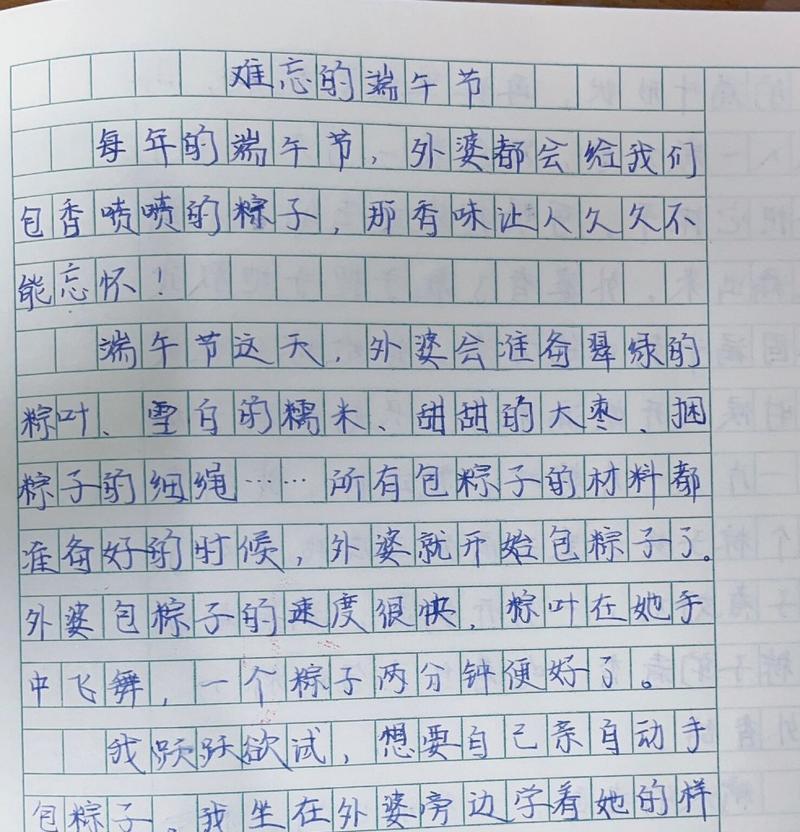 难忘的端午节
每年的端午节，外婆都会给我们
包香喷喷的粽子，那香味让人久久不
能忘怀！
端午节这天，外婆会准备翠绿的
粽叶、雪白的糯米、甜甜的大枣、捆
粽子的细绳……所有包粽子的材料都
准备好的时候，外婆就开始包粽子了。
外婆包粽子的速度很快，粽叶在她手
中飞舞，一个粽子两分钟便好了。
我跃跃欲试，想要自己亲自动手
包粽子。我坐在外婆旁边学着她的样